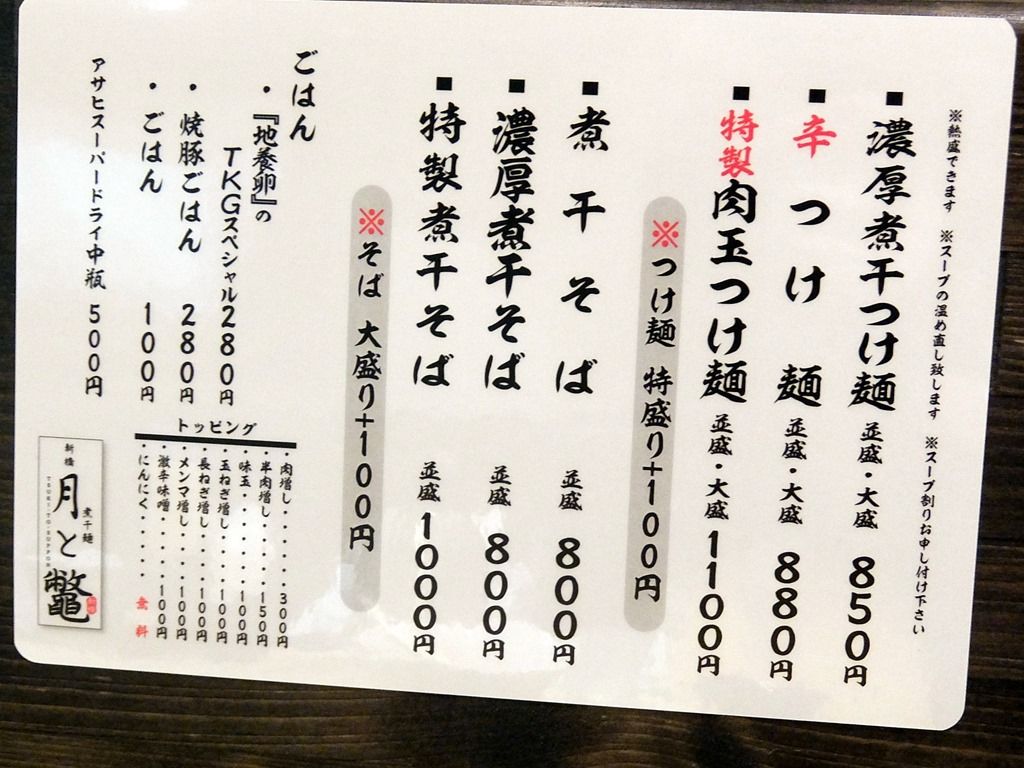 ※熱盛できます ※スープの温め直し致します ※スープ割りお申し付け下さい
■濃厚煮干つけ麺 並盛・大盛 850円
■辛つけ麺 並盛・大盛 880円
■特製肉玉つけ麺 並盛・大盛 1100円
※つけ麺 特盛り+100円
■煮干そば 並盛 800円
■濃厚煮干そば 並盛 800円
■特製煮干そば 並盛 1000円
※そば 大盛り+100円
ごはん
・『地養卵』の
TKGスペシャル280円
・焼豚ごはん 280円
・ごはん 100円
アサヒスーパードライ中瓶 500円
トッピング
・肉増し・・・・・300円
・半肉増し・・・・150円
・味玉・・・・・・100円
・玉ねぎ増し・・・100円
・長ねぎ増し・・・100円
・メンマ増し・・・100円
・激辛味噌・・・・100円
・にんにく・・・・無料
新橋
煮干麺
月と鼈
TSUKI-TO-SUPPON